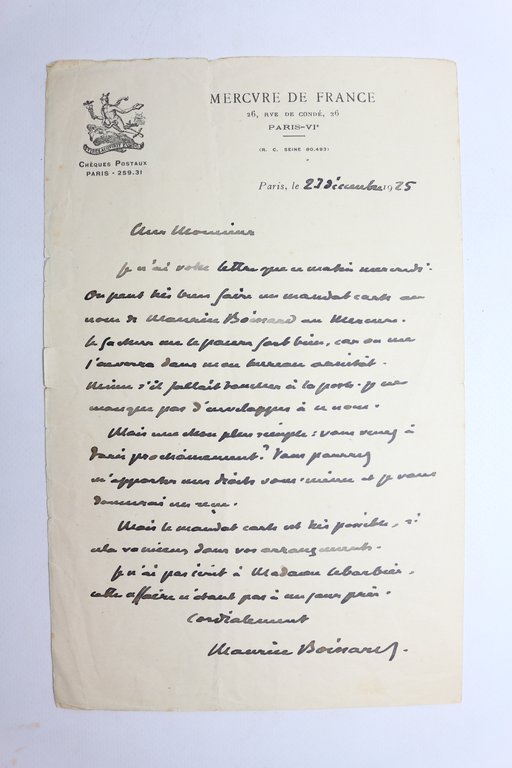 MERCVRE DE FRANCE
26, RVE DE CONDÉ, 26
PARIS-VIe
(R. C. SEINE 80.493)
CHÈQUES POSTAUX
PARIS - 259.31
Paris, le 23 décembre 1925
Cher Monsieur
Je n'ai votre lettre que ce matin mercredi.
On peut très bien faire un mandat carte au
nom de Maurice Boissard au Mercure.
Le facteur me le paiera fort bien, car on me
l'enverra dans mon bureau aussitôt.
Même s'il fallait toucher à la poste. Je ne
manque pas d'enveloppes à ce nom.
Mais une chose plus simple : vous venez à
Paris prochainement ? Vous pourrez
m'apporter mes droits vous-même et je vous
donnerai un reçu.
Mais le mandat carte est très possible, si
cela va mieux dans vos arrangements.
Je n'ai pas écrit à Madame Lebarbier,
cette affaire n'étant pas à un jour près.
Cordialement
Maurice Boissard.